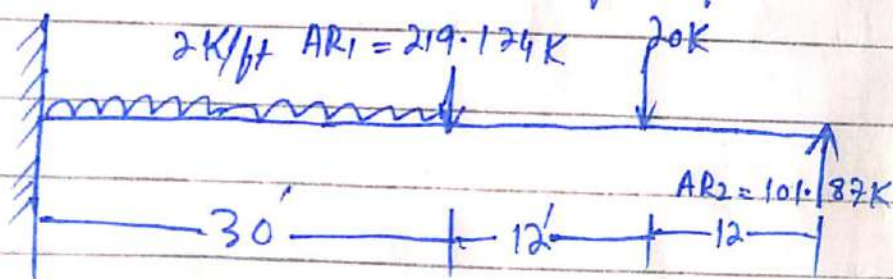 2K/ft AR1 = 219.124K 20K
AR2 = 101.87K
30' 12' 12